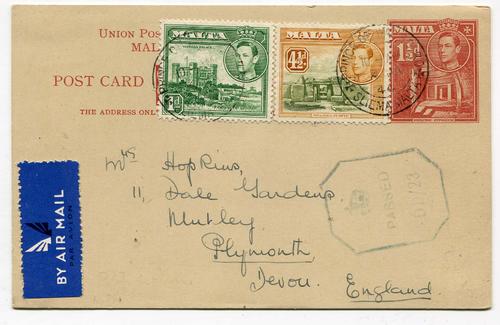 UNION POS
MAL
POST CARD
THE ADDRESS ONL
MALTA
VERDALA PALACE
MALTA
4½d
MALTA
1½d
BY AIR MAIL
PAR AVION
Mrs Hopkins,
11, Dale Gardens
Mutley
Plymouth
Devon. England.
PASSED